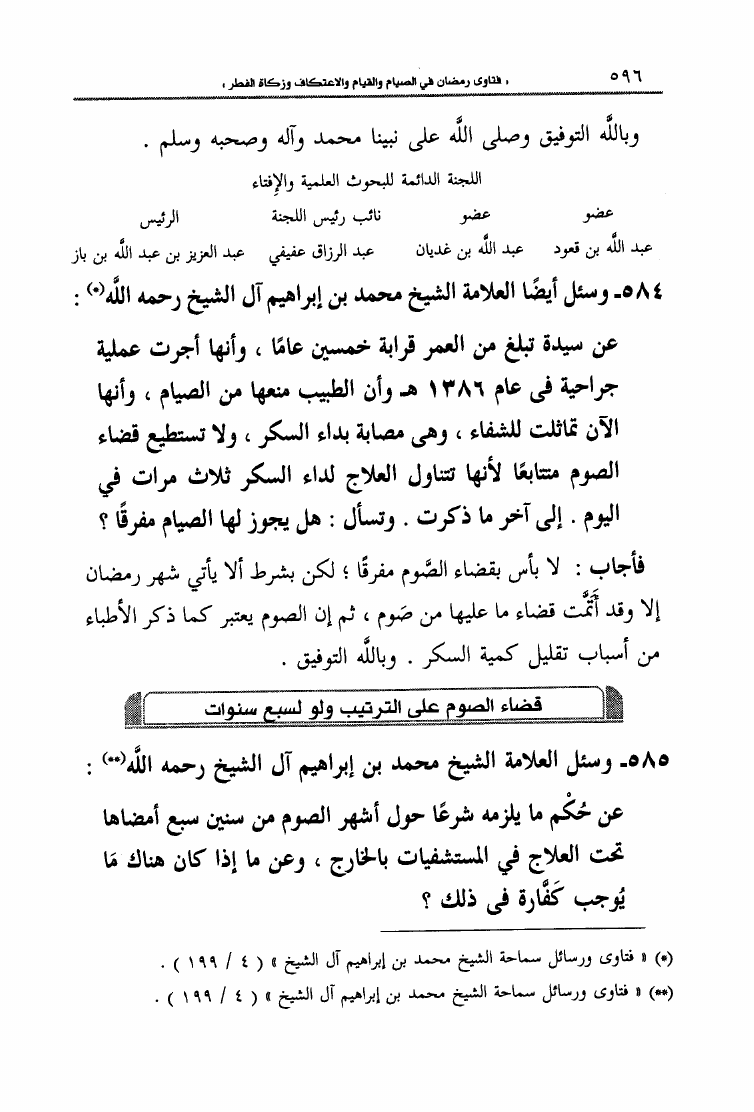 ٥٩٦ « فتاوى رمضان في الصيام والقيام والاعتكاف وزكاة الفطر »
وباللَّه التوفيق وصلى اللَّه على نبينا محمد وآله وصحبه وسلم .
اللجنة الدائمة للبحوث العلمية والإفتاء
عضو عضو نائب رئيس اللجنة الرئيس
عبد اللَّه بن قعود عبد اللَّه بن غديان عبد الرزاق عفيفي عبد العزيز بن عبد اللَّه بن باز
٥٨٤ـ وسئل أيضًا العلامة الشيخ محمد بن إبراهيم آل الشيخ رحمه اللَّه(*) :
عن سيدة تبلغ من العمر قرابة خمسين عامًا ، وأنها أجرت عملية
جراحية فى عام ١٣٨٦ هـ وأن الطبيب منعها من الصيام ، وأنها
الآن تماثلت للشفاء ، وهى مصابة بداء السكر ، ولا تستطيع قضاء
الصوم متتابعًا لأنها تتناول العلاج لداء السكر ثلاث مرات في
اليوم . إلى آخر ما ذكرت . وتسأل : هل يجوز لها الصيام مفرقًا ؟
فأجاب : لا بأس بقضاء الصَّوم مفرقًا ؛ لكن بشرط ألا يأتي شهر رمضان
إلا وقد أَتَمَّت قضاء ما عليها من صَوم ، ثم إن الصوم يعتبر كما ذكر الأطباء
من أسباب تقليل كمية السكر . وباللَّه التوفيق .
قضاء الصوم على الترتيب ولو لسبع سنوات
٥٨٥ـ وسئل العلامة الشيخ محمد بن إبراهيم آل الشيخ رحمه اللَّه(**) :
عن حُكْم ما يلزمه شرعًا حول أشهر الصوم من سنين سبع أمضاها
تحت العلاج في المستشفيات بالخارج ، وعن ما إذا كان هناك مَا
يُوجب كَفَّارة فى ذلك ؟
(*) « فتاوى ورسائل سماحة الشيخ محمد بن إبراهيم آل الشيخ » ( ٤ / ١٩٩ ) .
(**) « فتاوى ورسائل سماحة الشيخ محمد بن إبراهيم آل الشيخ » ( ٤ / ١٩٩ ) .